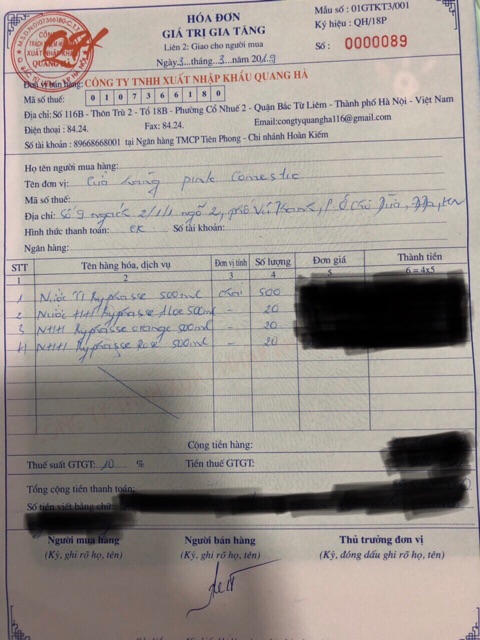 HÓA ĐƠN
GIÁ TRỊ GIA TĂNG
Liên 2: Giao cho người mua
Ngày 3 tháng 3 năm 2019
Mẫu số : 01GTKT3/001
Ký hiệu : QH/18P
Số : 0000089
Đơn vị bán hàng: CÔNG TY TNHH XUẤT NHẬP KHẨU QUANG HÀ
Mã số thuế: 0107366180
Địa chỉ: Số 116B - Thôn Trù 2 - Tổ 18B - Phường Cổ Nhuế 2 - Quận Bắc Từ Liêm - Thành phố Hà Nội - Việt Nam
Điện thoại : 84.24. Fax: 84.24. Email:congtyquangha116@gmail.com
Số tài khoản : 89668668001 tại Ngân hàng TMCP Tiên Phong - Chi nhánh Hoàn Kiếm
Họ tên người mua hàng:
Tên đơn vị: Cửa hàng pink Comestic
Mã số thuế:
Địa chỉ: Số 9 ngách 2/1/1 ngõ 2, phố P. Ô Chợ Dừa, HN
Hình thức thanh toán: CK Số tài khoản:
Ngân hàng:
STT Tên hàng hóa, dịch vụ Đơn vị tính Số lượng Đơn giá Thành tiền
1 2 3 4 5 6 = 4x5
1 Nước TT Byphasse 500ml chai 500
2 Nước HH Byphasse Aloe 500ml - 20
3 NHH Byphasse orange 500ml - 20
4 NHH Byphasse Rose 500ml - 20
Cộng tiền hàng:
Thuế suất GTGT: 10 % Tiền thuế GTGT:
Tổng cộng tiền thanh toán:
Số tiền viết bằng chữ:
Người mua hàng Người bán hàng Thủ trưởng đơn vị
(Ký, ghi rõ họ, tên) (Ký, ghi rõ họ, tên) (Ký, đóng dấu ghi rõ họ, tên)